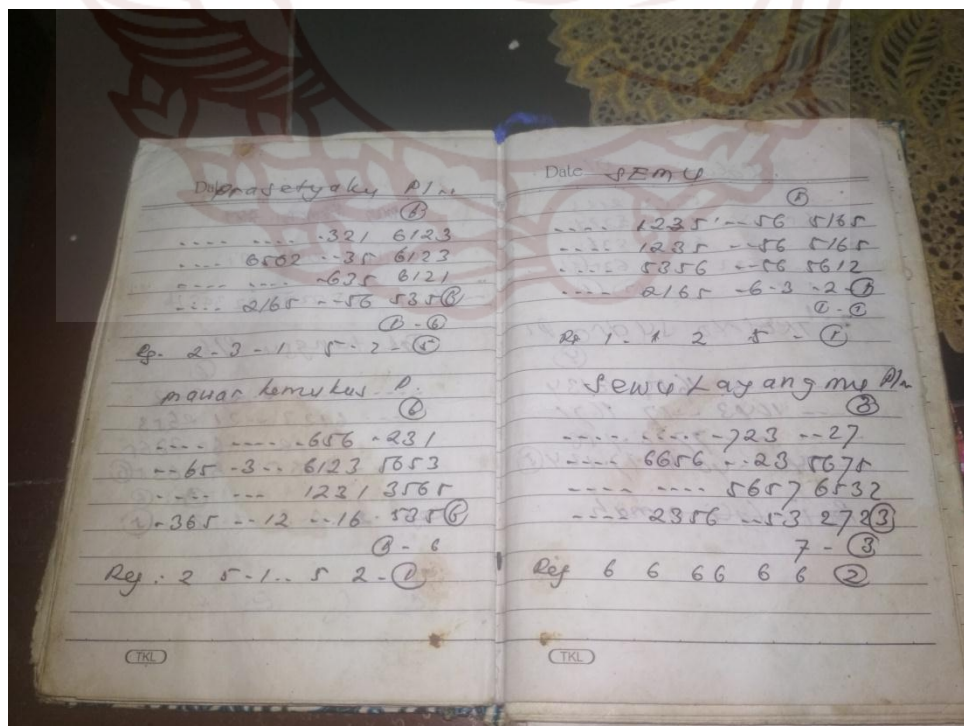 Date prasetyaku P/n
⑥
.... .... .321 6123
.... 6502 ..35 6123
.... .... .635 6121
.... 2165 ..56 535⑥
① - ⑥
Rg. 2 - 3 - 1 5 - 2 - ⑤
mawar kemukus P.
⑥
.... .... .656 .231
..65 .3.. 6123 5653
.... .... 1231 3565
.365 ..12 ..16 .535⑥
① - 6
Reg . 2 5 - 1 .. 5 2 - ①
TKL
Date SEMU
.... 1235 ..56 5165
.... 1235 ..56 5165
.... 5356 ..56 5612
.... 2165 -6-3 -2-
Rg 1 - 1 2 5 -
Sewu Layang mu P/n
③
.... .... .723 ..27
.... 6656 ..23 5675
.... .... 5657 6532
.... 2356 ..53 272③
7 - ③
Reg 6 6 66 6 6 ②
TKL